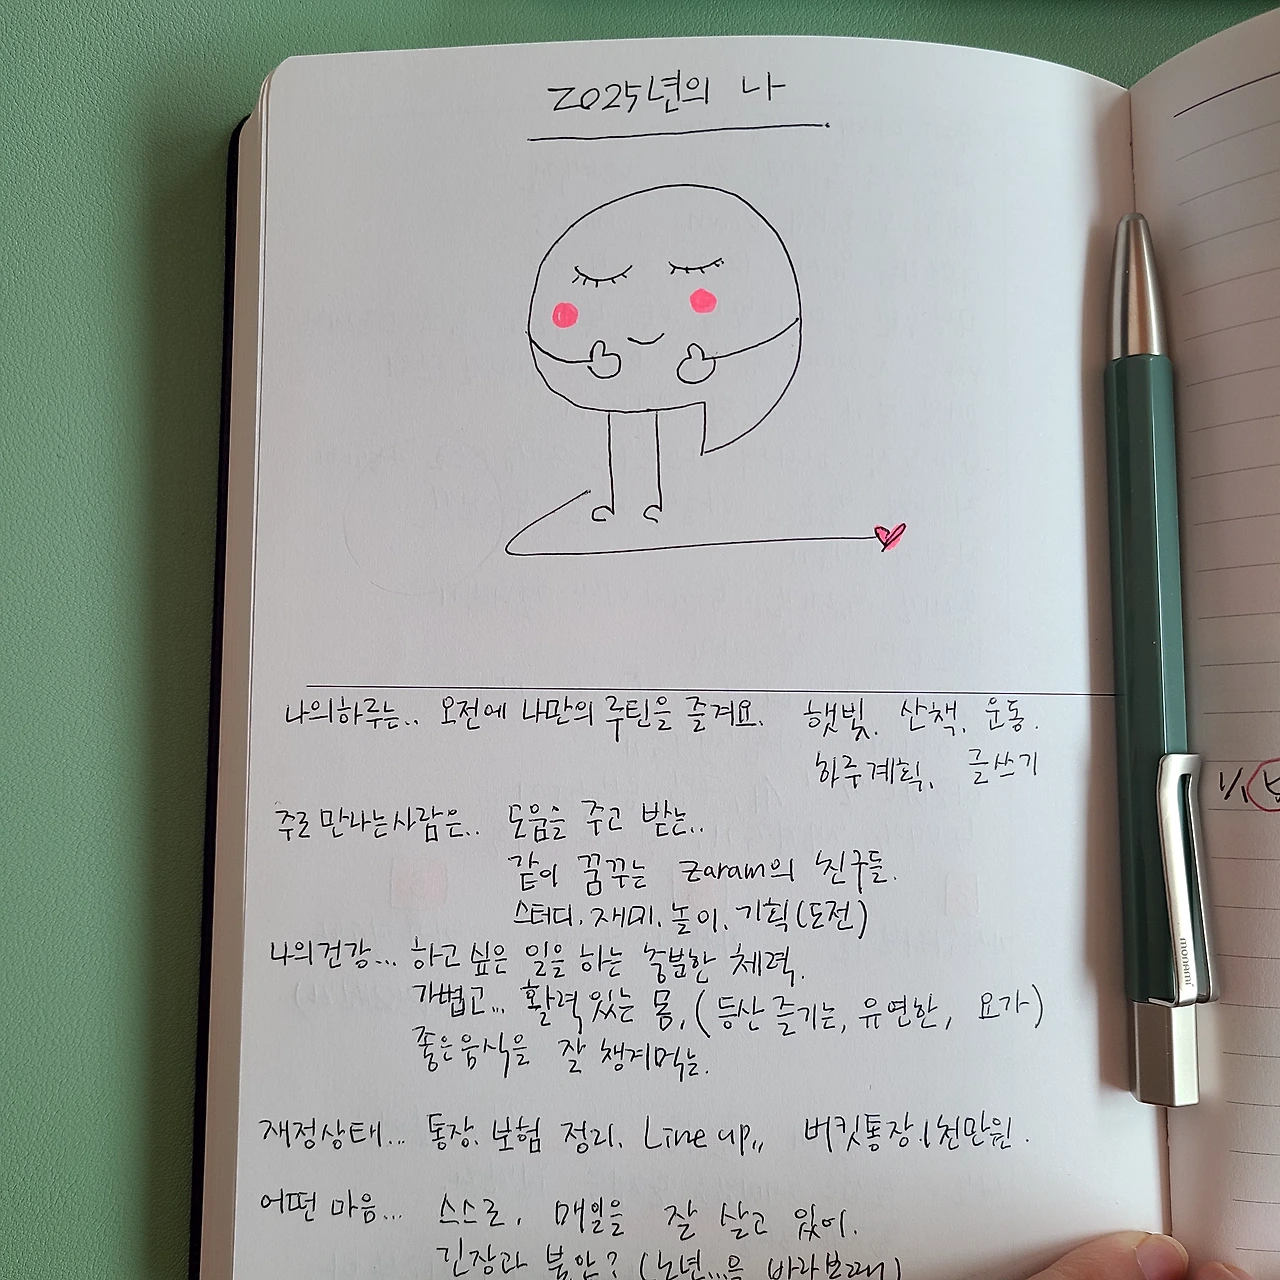 2025년의 나
나의하루는.. 오전에 나만의 루틴을 즐겨요. 햇빛. 산책. 운동.
하루계획. 글쓰기
주로 만나는사람은.. 도움을 주고 받는..
같이 꿈꾸는 zaram의 친구들.
스터디. 재미. 놀이. 기획(도전)
나의건강... 하고 싶은 일을 하는 충분한 체력.
가볍고... 활력 있는 몸. (등산 즐기는, 유연한, 요가)
좋은음식을 잘 챙겨먹는.
재정상태... 통장. 보험 정리. Line up,, 버킷통장.1천만원.
어떤 마음... 스스로, 매일을 잘 살고 있어.
긴장과 불안? (노년...을 바라보때)
1/1
monami